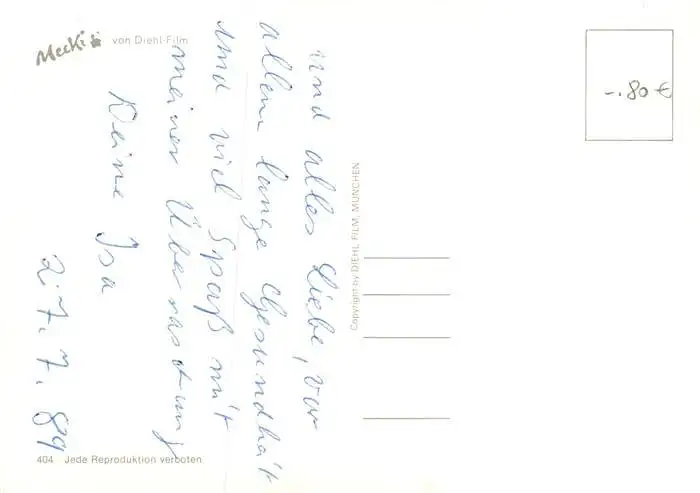 Mecki von Diehl-Film
-.80 €
und alles Liebe, vor
allem lange Gesundheit
und viel Spaß mit
meiner Überraschung
Deine Isa
2.7.7.89
Copyright by DIEHL FILM, MÜNCHEN
404 Jede Reproduktion verboten